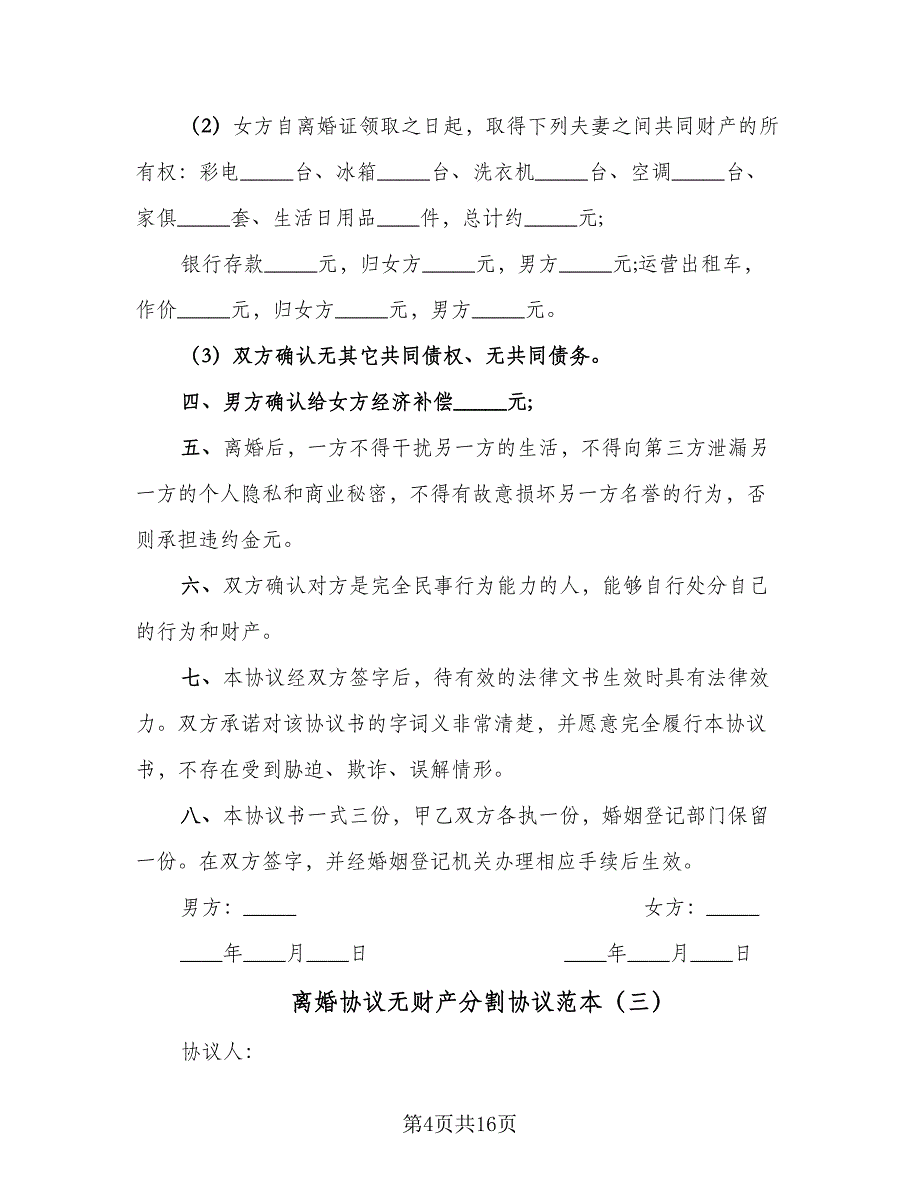 （2）女方自离婚证领取之日起，取得下列夫妻之间共同财产的所
有权：彩电_____台、冰箱_____台、洗衣机_____台、空调_____台、
家俱_____套、生活日用品____件，总计约_____元;
银行存款_____元，归女方_____元，男方_____元;运营出租车，
作价_____元，归女方_____元，男方_____元。
（3）双方确认无其它共同债权、无共同债务。
四、男方确认给女方经济补偿_____元;
五、离婚后，一方不得干扰另一方的生活，不得向第三方泄漏另
一方的个人隐私和商业秘密，不得有故意损坏另一方名誉的行为，否
则承担违约金元。
六、双方确认对方是完全民事行为能力的人，能够自行处分自己
的行为和财产。
七、本协议经双方签字后，待有效的法律文书生效时具有法律效
力。双方承诺对该协议书的字词义非常清楚，并愿意完全履行本协议
书，不存在受到胁迫、欺诈、误解情形。
八、本协议书一式三份，甲乙双方各执一份，婚姻登记部门保留
一份。在双方签字，并经婚姻登记机关办理相应手续后生效。
男方：_____ 女方：_____
____年____月____日 ____年____月____日
离婚协议无财产分割协议范本（三）
协议人：
第4页共16页